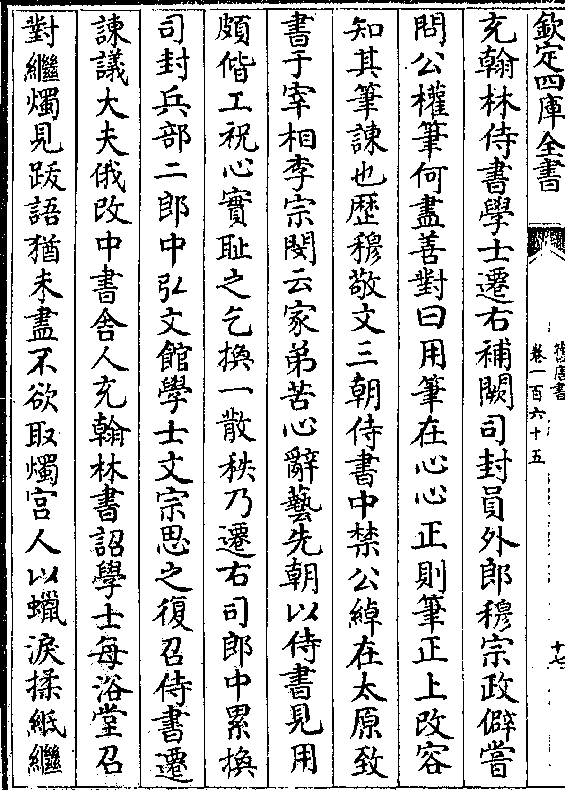 欽定四庫全書
舊唐書
卷一百六十五
十七
充翰林侍書學士遷右補闕司封員外郎穆宗政僻嘗
問公權筆何盡善對曰用筆在心心正則筆正上改容
知其筆諫也歴穆敬文三朝侍書中禁公綽在太原致
書于宰相李宗閔云家弟苦心辭藝先朝以侍書見用
頗偕工祝心實耻之乞換一散秩乃遷右司郎中累換
司封兵部二郎中弘文館學士文宗思之復召侍書遷
諫議大夫俄改中書舍人充翰林書詔學士每浴堂召
對繼燭見跋語猶未盡不欲取燭宫人以蠟淚揉紙繼